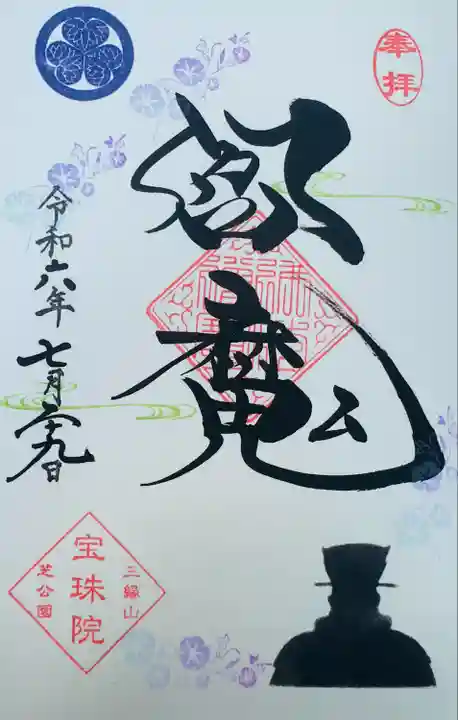 奉拝
閻魔
令和六年七月二十九日
三縁山
宝珠院
芝公園